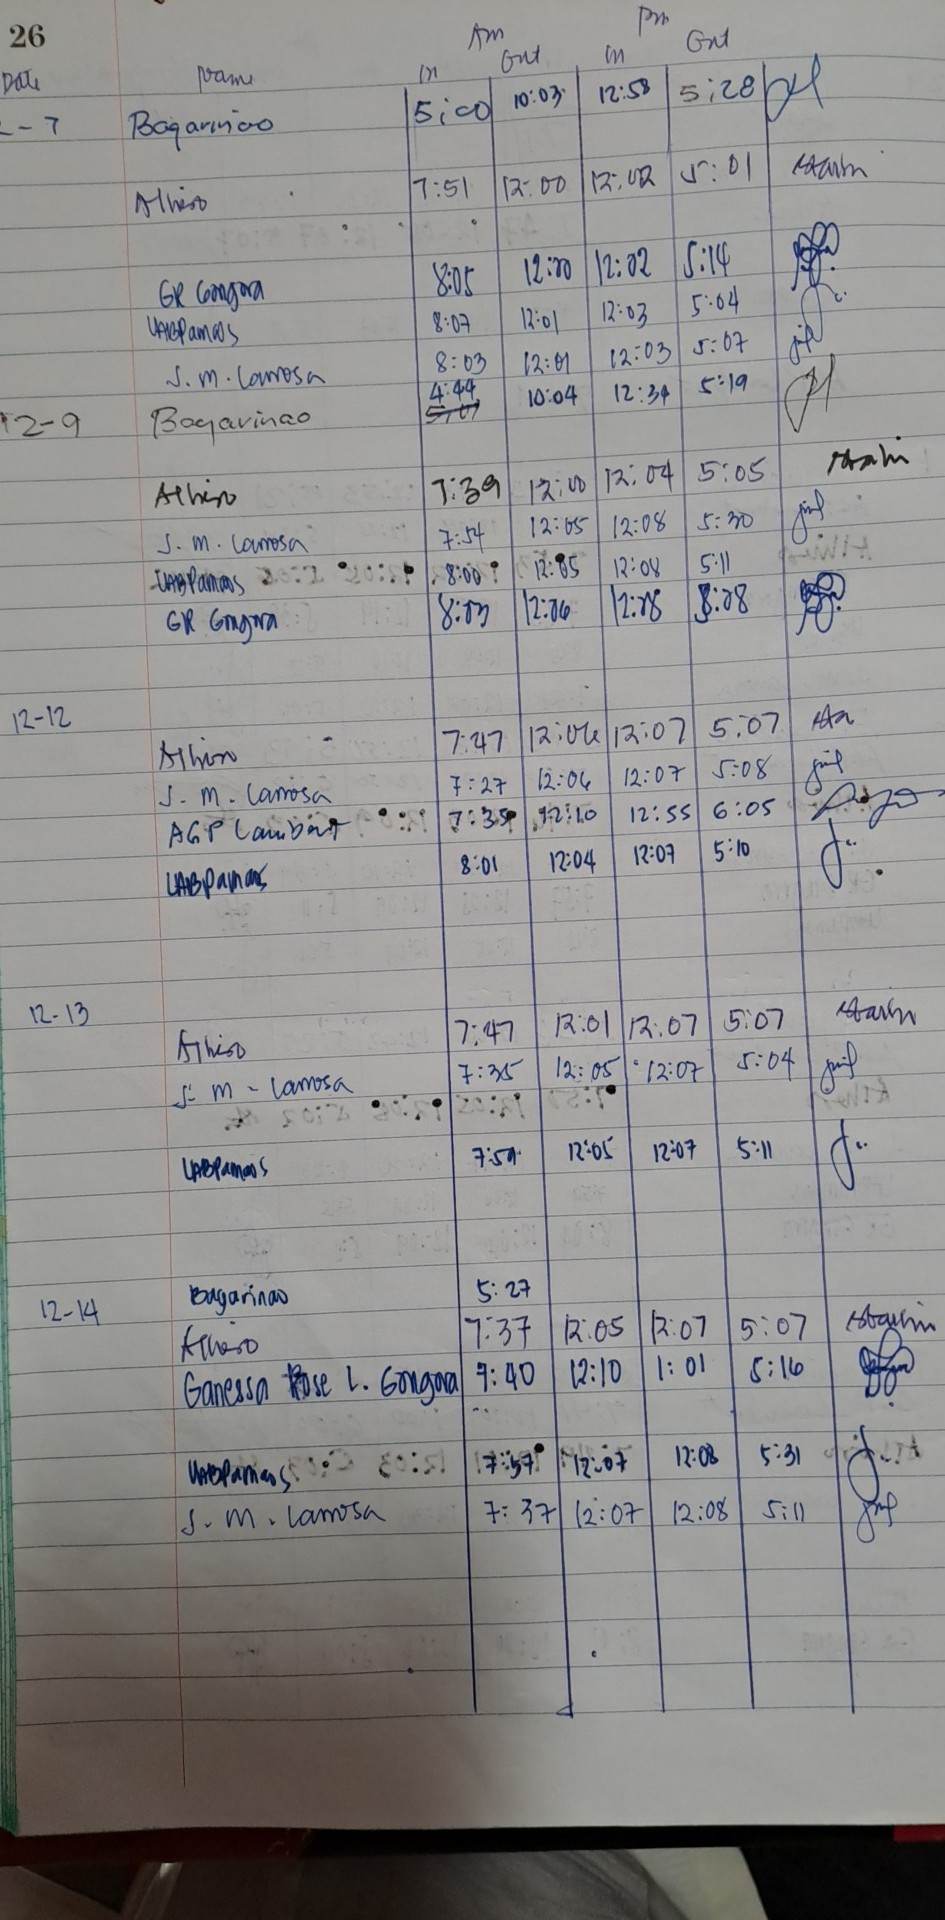 26
Am Pm
Date Name In Out In Out
-7 Bagarinao 5:00 10:03 12:58 5:28
7:51 12:00 12:02 5:01
GR Gongora 8:05 12:00 12:02 5:14
UABPamaos 8:07 12:01 12:03 5:04
J. M. Lamosa 8:03 12:01 12:03 5:07
4:44
12-9 Bagarinao 5:07 10:04 12:34 5:19
7:39 12:00 12:04 5:05
J. M. Lamosa 7:54 12:05 12:08 5:30
UABPamaos 8:00 12:05 12:08 5:11
GR Gongora 8:03 12:06 12:08 5:08
12-12
7:47 12:06 12:07 5:07
J. M. Lamosa 7:27 12:06 12:07 5:08
AGP Lambat 7:35 12:10 12:55 6:05
UABPamaos 8:01 12:04 12:07 5:10
12-13
7:47 12:01 12:07 5:07
J. M - Lamosa 7:35 12:05 12:07 5:04
UABPamaos 7:59 12:05 12:07 5:11
Bagarinao 5:27
12-14 7:37 12:05 12:07 5:07
Ganessa Rose L. Gongora 7:40 12:10 1:01 5:16
UABPamaos 7:57 12:07 12:08 5:31
J. M. Lamosa 7:37 12:07 12:08 5:11